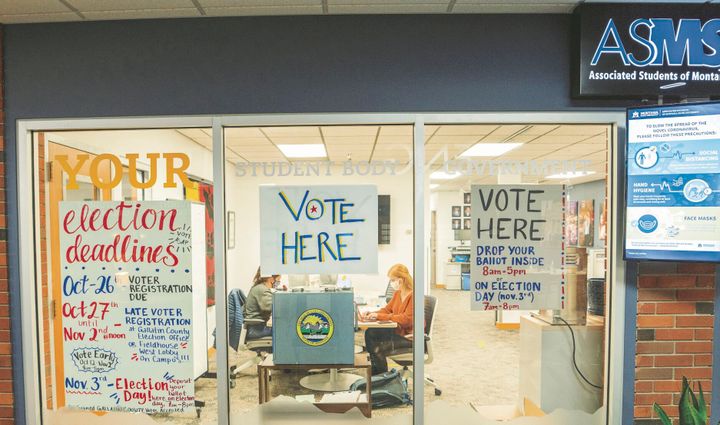 ASMS
Associated Students of Monta
YOUR STUDENT BODY GOVERNMENT
election
deadlines
Oct-26 VOTER
REGISTRATION
DUE
Oct 27th
until
Nov 2nd @noon
LATE VOTER
REGISTRATION
@ Gallatin County
Election Office
or Fieldhouse
West Lobby
On Campus!!!
Vote Early
Nov. 3rd - Election
Day!
Deposit
your
ballot
here, on
election
day,
7am-8pm
VOTE
HERE
VOTE
HERE
DROP YOUR
BALLOT INSIDE
8am-5pm
or
ON ELECTION
DAY (nov. 3rd)
7am-8pm
TO SLOW THE SPREAD OF THE
NOVEL CORONAVIRUS,
PLEASE FOLLOW THESE PRECAUTIONS:
SOCIAL
DISTANCING
HAND
HYGIENE
FACE MASKS